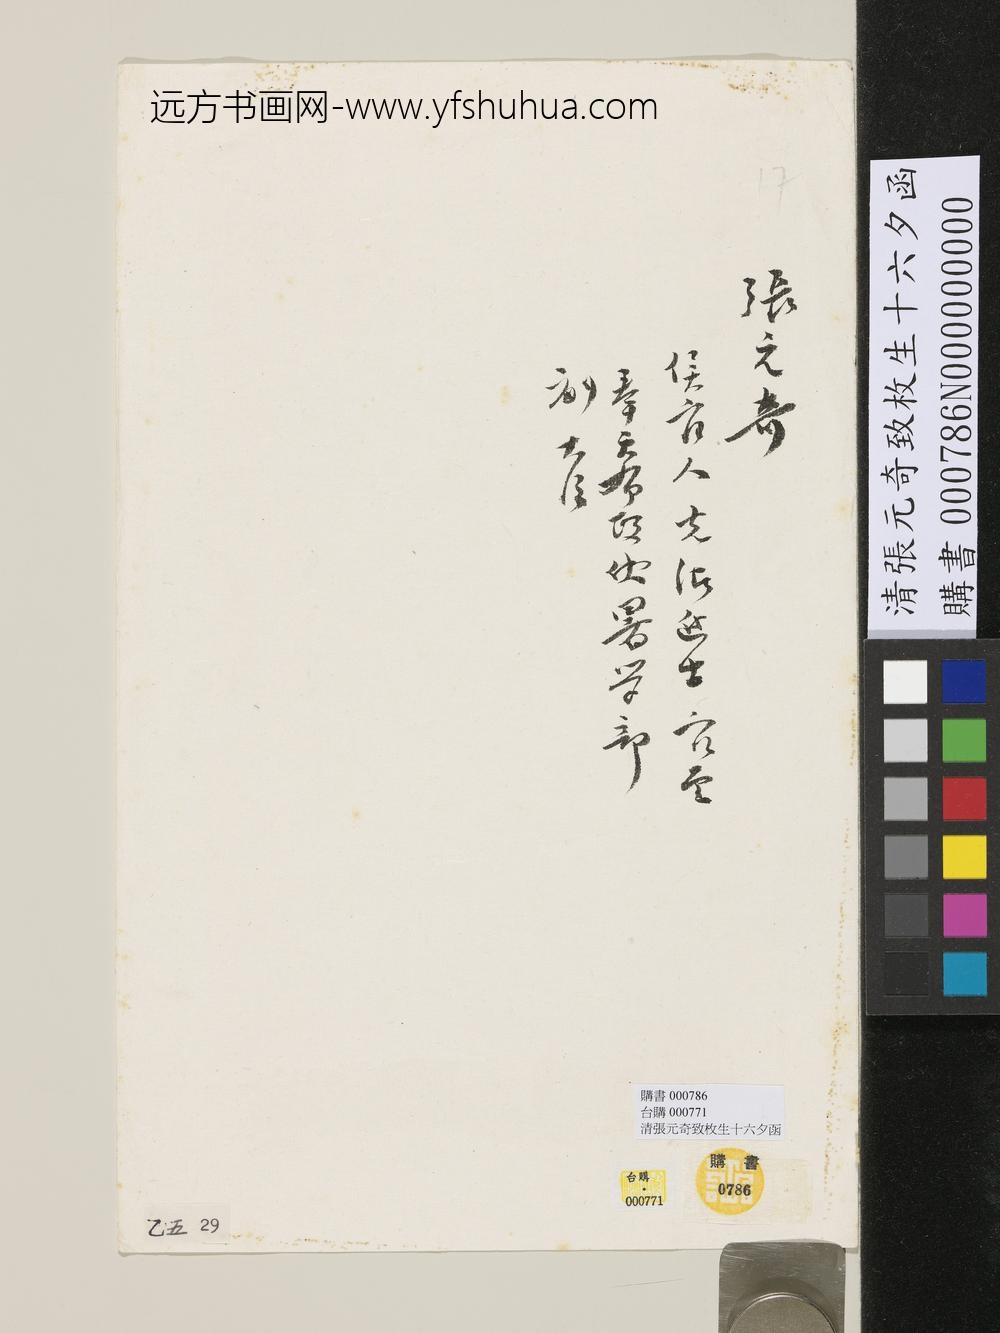 远方书画网-www.yfshuhua.com
17
張元奇
侯官人 光緒進士 官至
奉天布政使署学部
副大臣
購書 000786
台購 000771
清張元奇致枚生十六夕函
台購
000771
購書
0786
乙五 29
清張元奇致枚生十六夕函
購書 000786N000000000